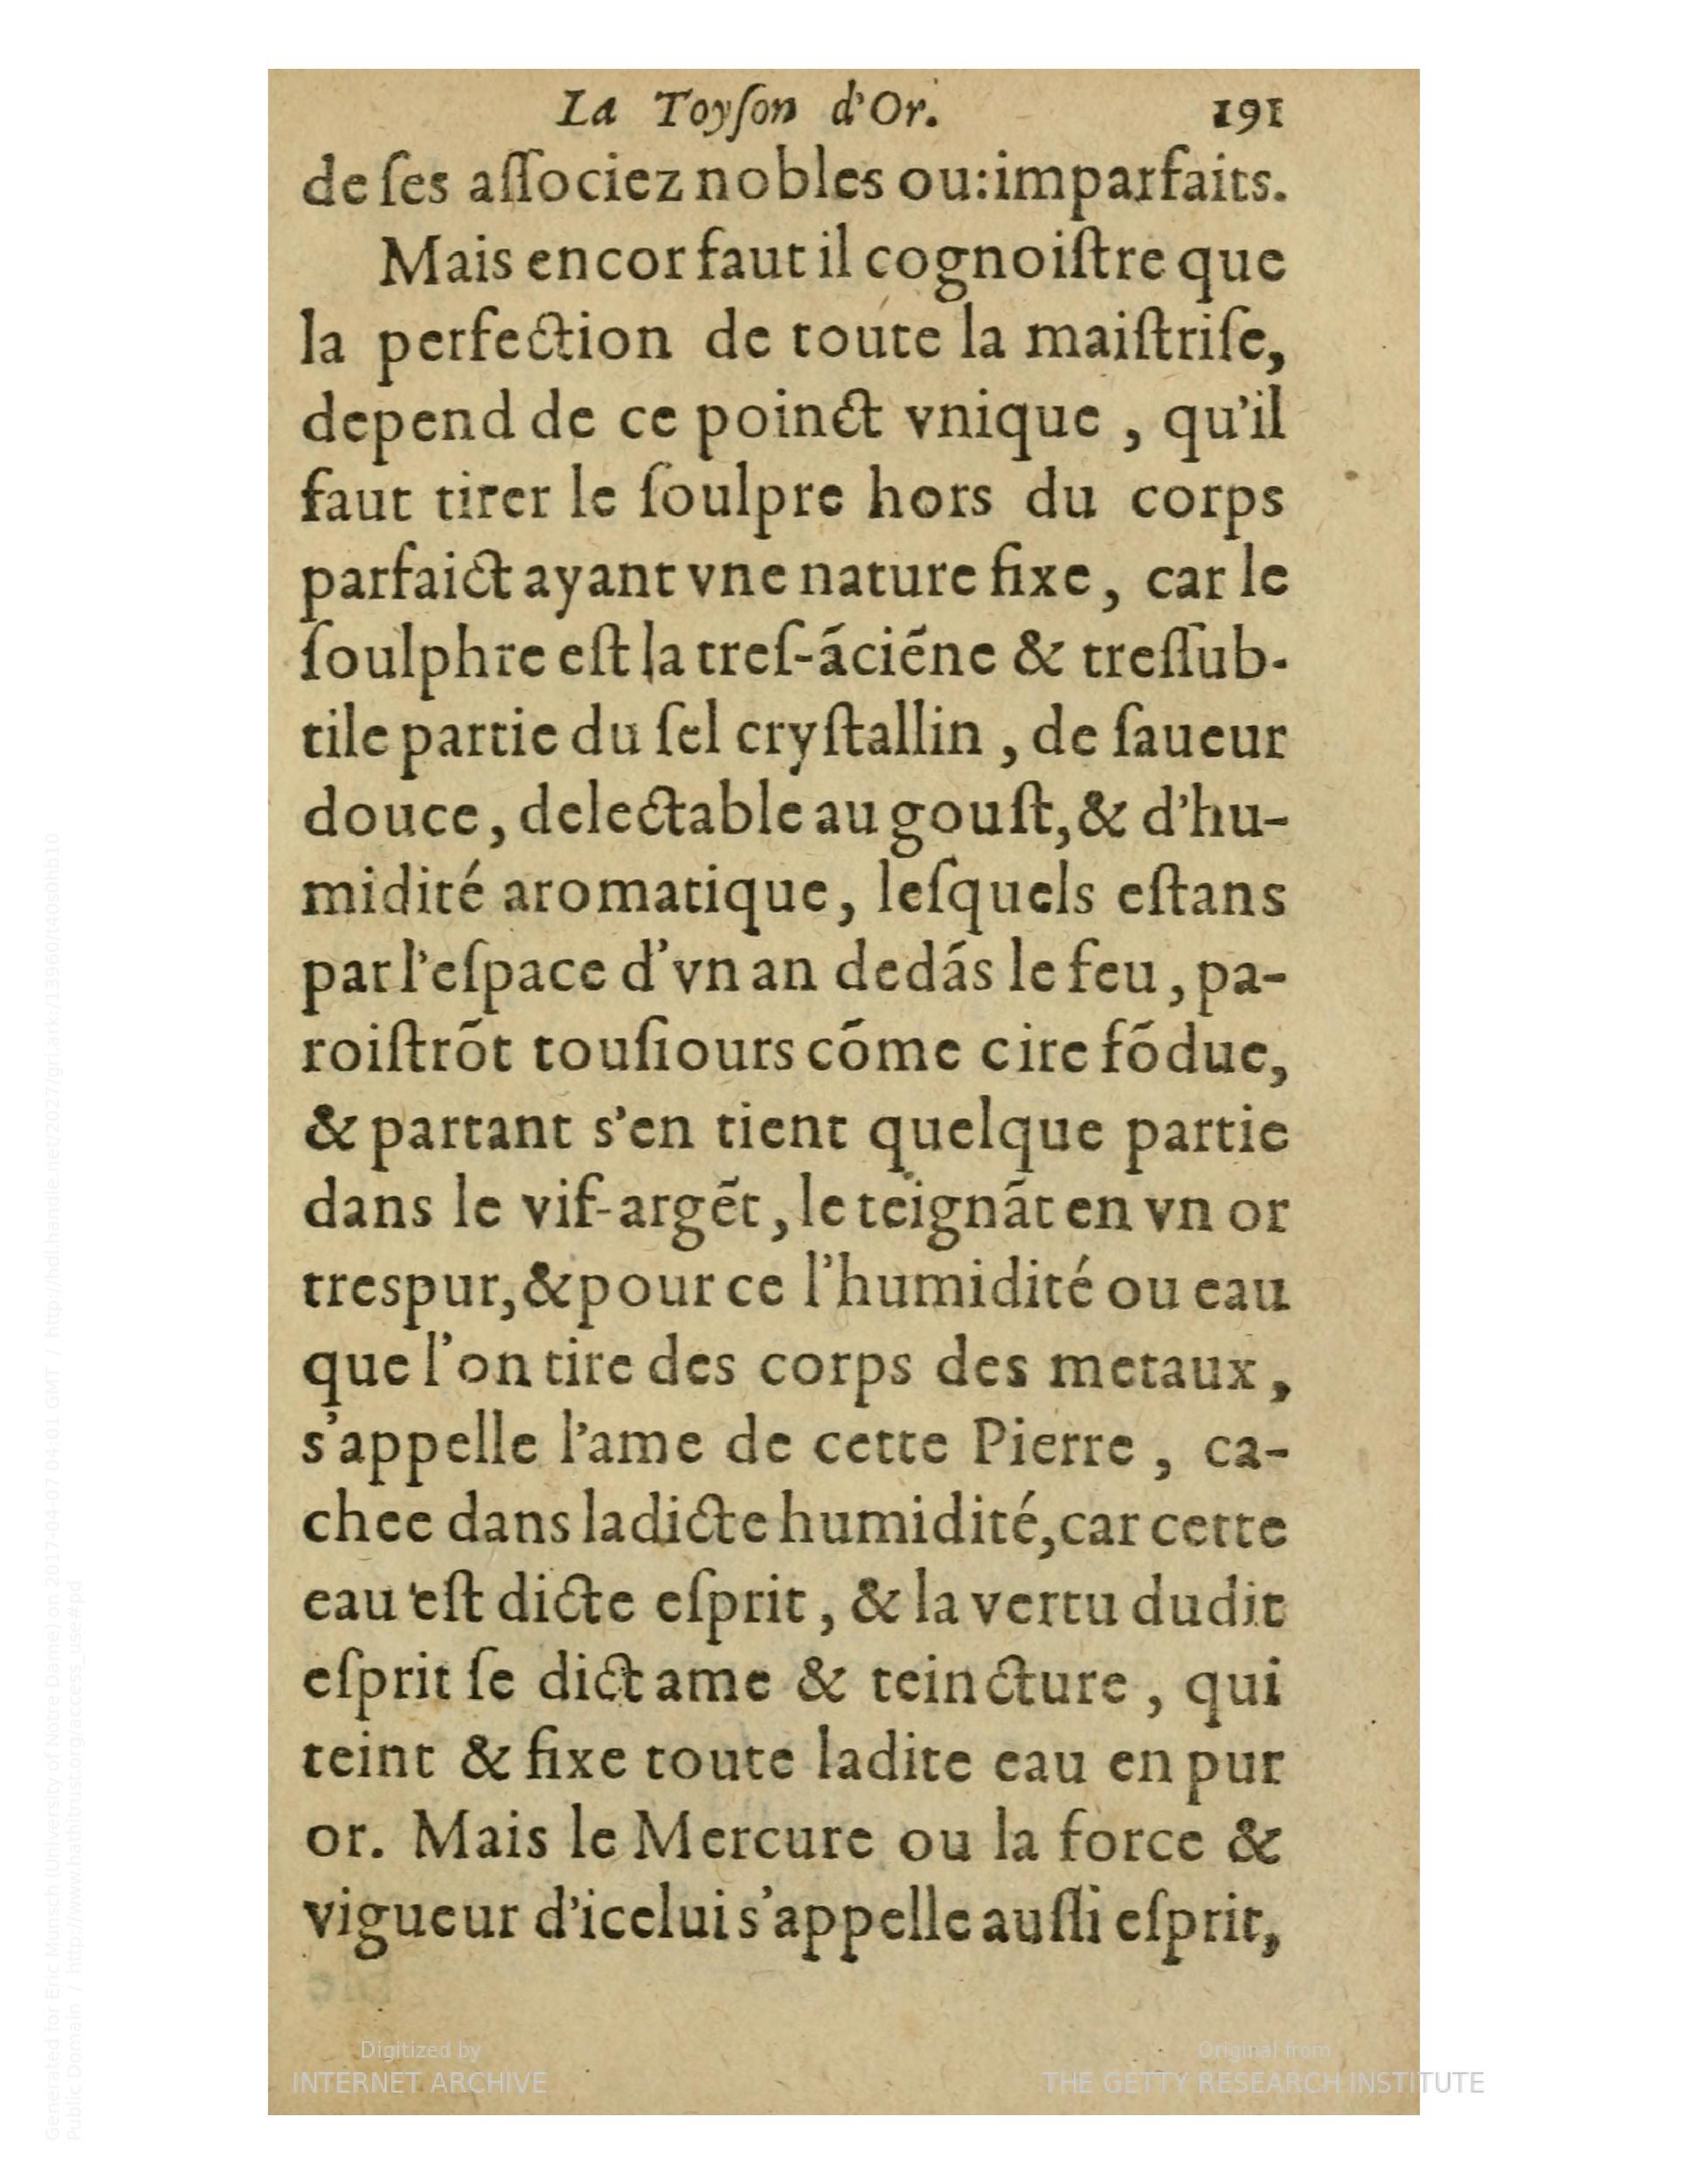 La Toyſon d'Or. 191
de ſes aſſociez nobles ou:imparfaits.
Mais encor faut il cognoiſtre que
la perfection de toute la maiſtriſe,
depend de ce poinct vnique , qu'il
faut tirer le ſoulpre hors du corps
parfaict ayant vne nature fixe, car le
ſoulphre eſt la treſ-ãciẽne & treſſub-
tile partie du ſel cryſtallin , de ſaueur
douce, delectable au gouſt,& d'hu-
midité aromatique, leſquels eſtans
par l'eſpace d'vn an dedãs le feu, pa-
roiſtrõt touſiours cõme cire fõdue,
& partant s'en tient quelque partie
dans le vif-argẽt, le teignãt en vn or
trespur,& pour ce l'humidité ou eau
que l'on tire des corps des metaux,
s'appelle l'ame de cette Pierre , ca-
chee dans ladicte humidité,car cette
eau est dicte eſprit , & la vertu dudit
eſprit ſe dict ame & teincture , qui
teint & fixe toute ladite eau en pur
or. Mais le Mercure ou la force &
vigueur d'icelui s'appelle auſſi eſprit,
Digitized by
INTERNET ARCHIVE
Original from
THE GETTY RESEARCH INSTITUTE
Generated for Eric Munsch (University of Notre Dame) on 2017-04-07 04:01 GMT / http://hdl.handle.net/2027/gri.ark:/13960/t40s0hb10
Public Domain / http://www.hathitrust.org/access_use#pd